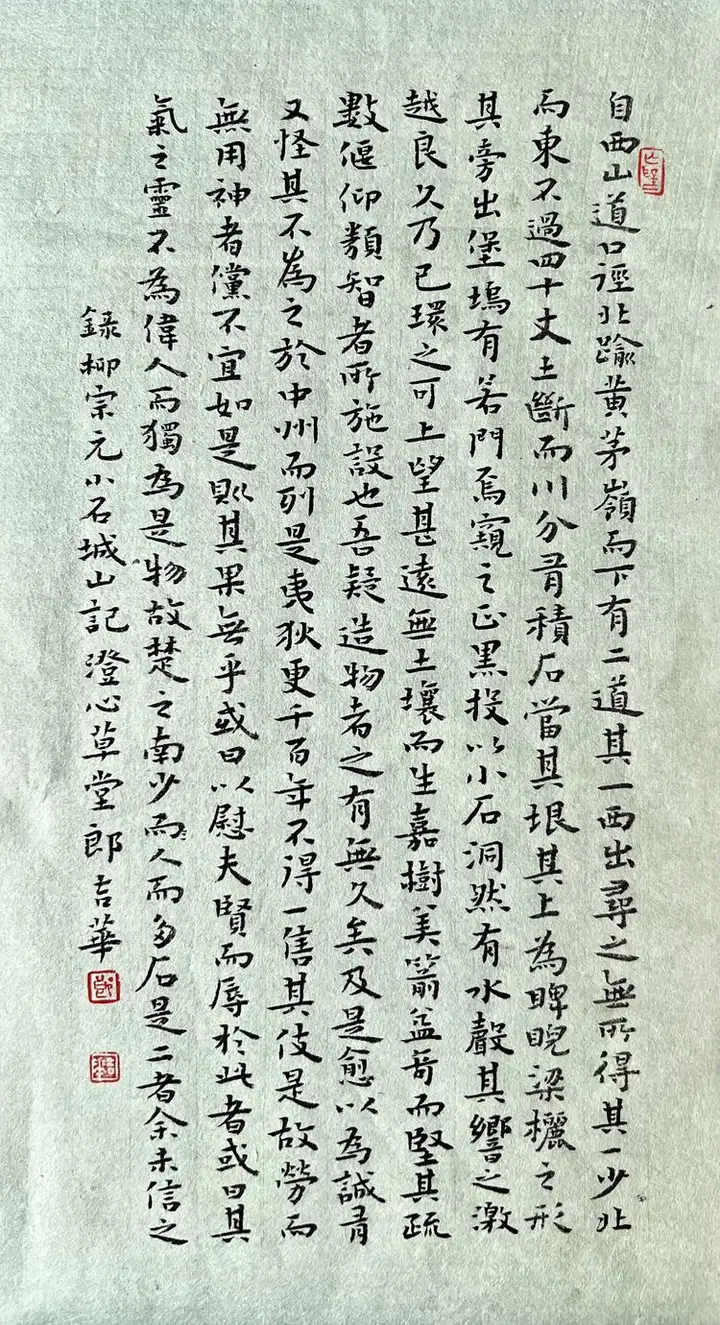 自西山道口徑北踰黃茅嶺而下有二道其一西出尋之無所得其一少北
而東不過四十丈土斷而川分有積石當其垠其上為睥睨梁欐之形
其旁出堡塢有若門焉窺之正黑投以小石洞然有水聲其響之激
越良久乃已環之可上望甚遠無土壤而生嘉樹美箭益奇而堅其疏
數偃仰類智者所施設也吾疑造物者之有無久矣及是愈以為誠有
又怪其不為之於中州而列是夷狄更千百年不得一售其伎是故勞而
無用神者儻不宜如是則其果無乎或曰以慰夫賢而辱於此者或曰其
氣之靈不為偉人而獨為是物故楚之南少而人而多石是二者余未信之
錄柳宗元小石城山記澄心草堂郎吉華